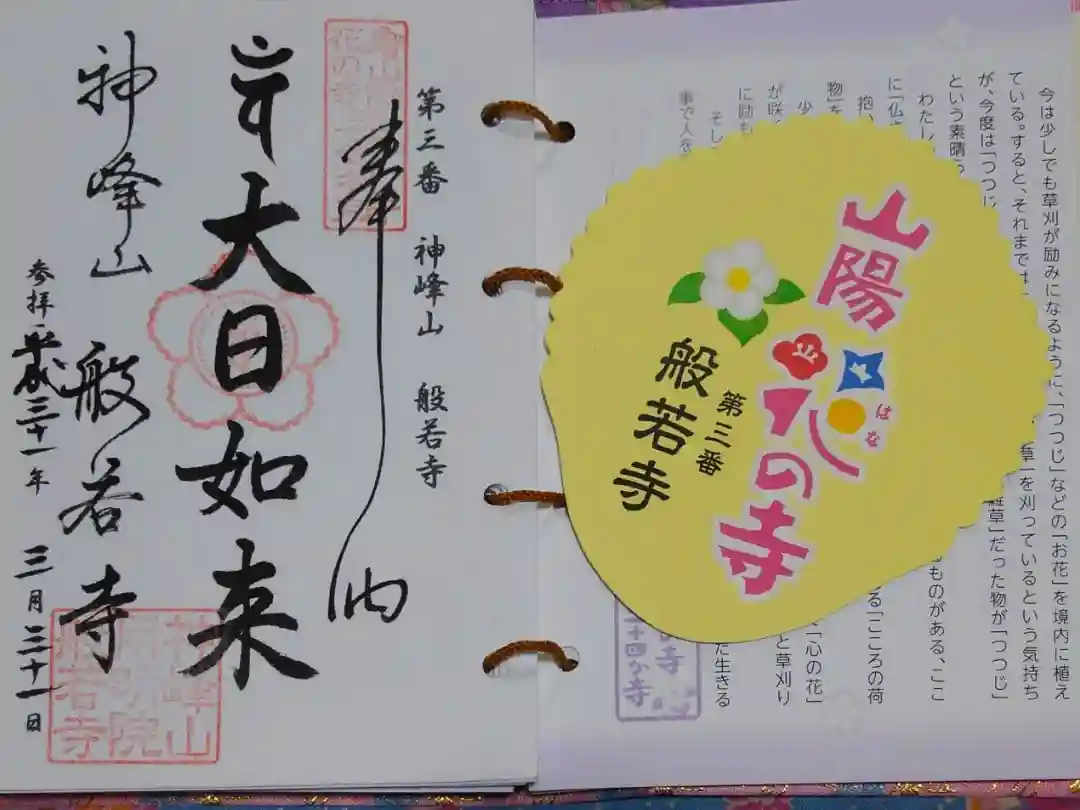 奉納
第三番 神峰山 般若寺
大日如来
神峰山 般若寺
参拝 平成三十一年 三月三十一日
神峰山
用明院
般若寺
山陽
花の寺
はな
第三番
般若寺
今は少しでも草刈が励みになるように、「つつじ」などの「お花」を境内に植え
ている。すると、それまでは
草」を刈っているという気持ち
が、今度は「つつじ
雑草」だった物が「つつじ」
という素晴ら
ものがある、ここ
わたし
に「仏さ
る「こころの荷
抱い
物」を
、「心の花」
少し
と草刈り
が咲く
に励も
た生きる
そし
事で人を
十四か寺